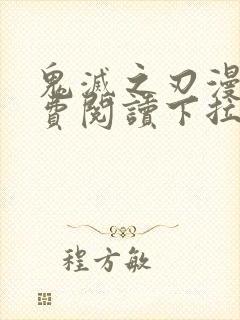 鬼滅之刃漫
費閱讀下拉
程方敏